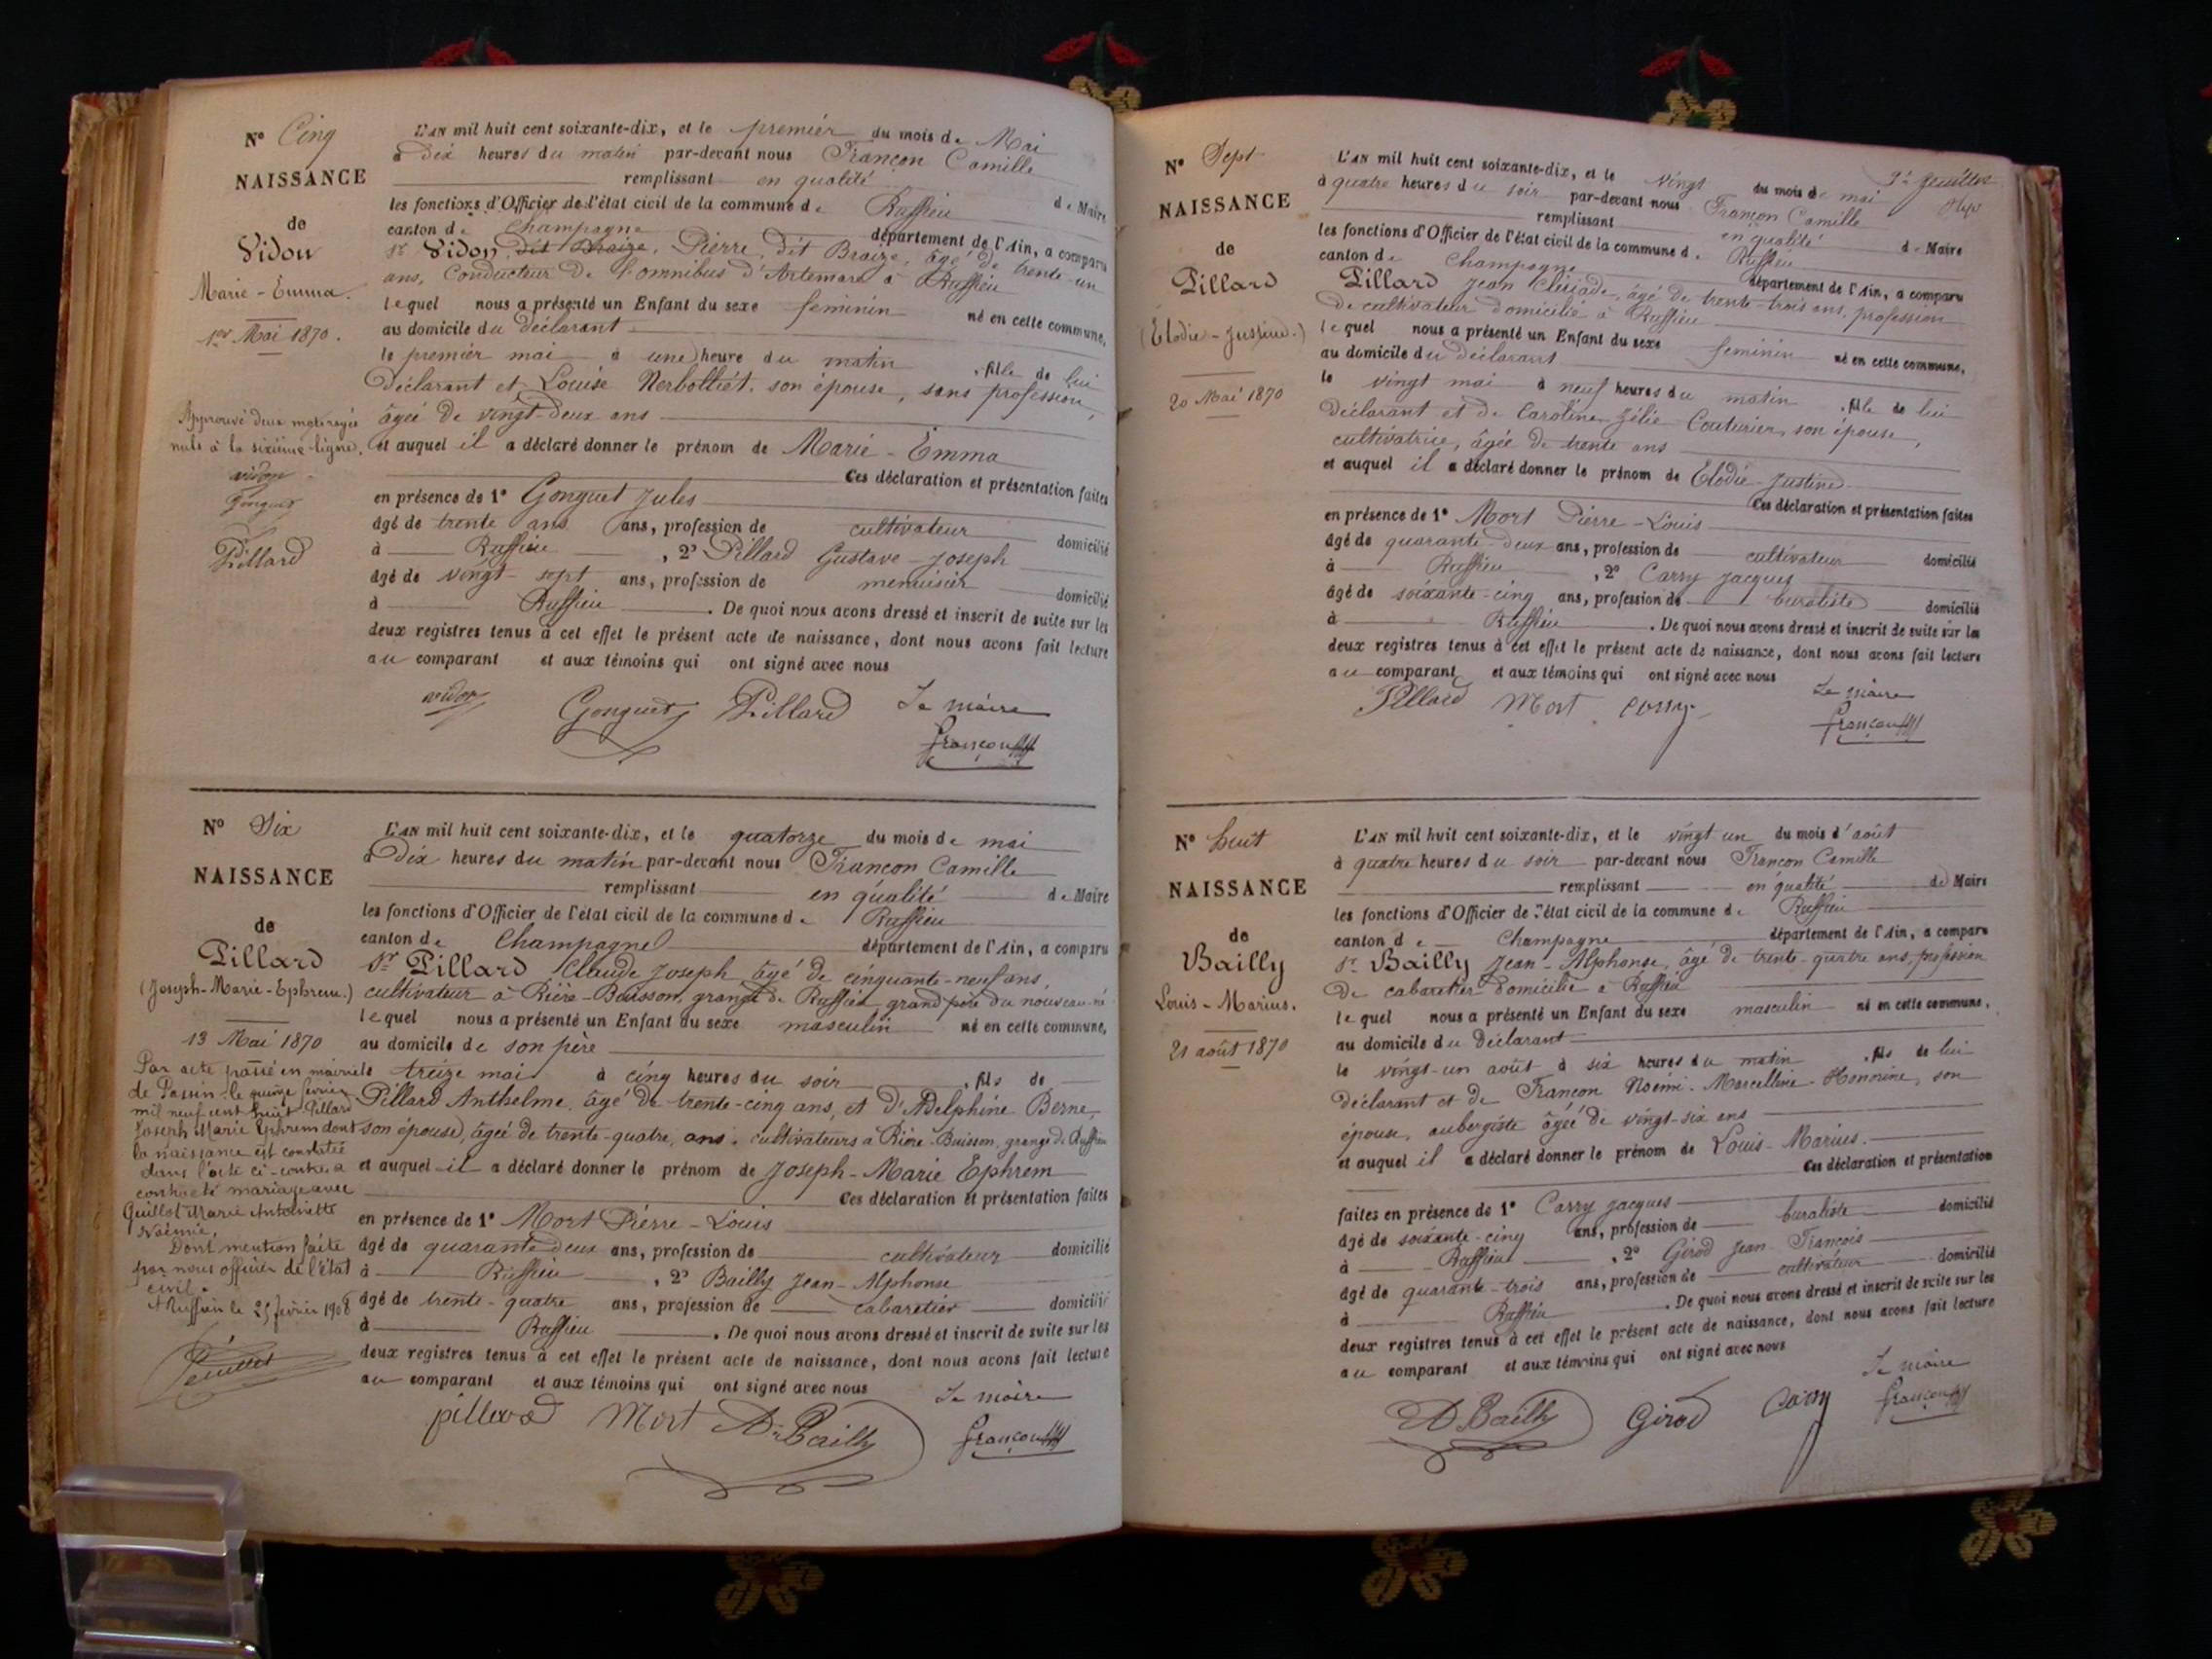 N° Cinq
NAISSANCE
de
Vidon
Marie-Emma.
1er Mai 1870.
Approuvé deux mots rayés
nuls à la sixième ligne.
vidon
Gonguet
Pillard
L'AN mil huit cent soixante-dix, et le premier du mois de Mai
à dix heures du matin par-devant nous Françon Camille
remplissant en qualité de Maire
les fonctions d'Officier de l'état civil de la commune de Ruffieu
canton de Champagne département de l'Ain, a comparu
Sr Vidon, dit Braize, Pierre, dit Braize, âgé de trente-un
ans, Conducteur de l'omnibus d'Artemare à Ruffieu
lequel nous a présenté un Enfant du sexe féminin né en cette commune,
au domicile du déclarant
le premier mai à une heure du matin, fille de lui
Déclarant et Louise Nerbolliet, son épouse, sans profession,
âgée de vingt-deux ans
et auquel il a déclaré donner le prénom de Marie-Emma
Ces déclaration et présentation faites
en présence de 1° Gonguet Jules
âgé de trente ans ans, profession de cultivateur domicilié
à Ruffieu, 2° Pillard Gustave-Joseph
âgé de vingt-sept ans, profession de menuisier domicilié
à Ruffieu. De quoi nous avons dressé et inscrit de suite sur les
deux registres tenus à cet effet le présent acte de naissance, dont nous avons fait lecture
au comparant et aux témoins qui ont signé avec nous
vidon Gonguet Pillard Le maire
françon
N° Six
NAISSANCE
de
Pillard
(Joseph-Marie-Ephrem.)
13 Mai 1870
Par acte passé en mairie
de Passin le quinze février
mil neuf cent huit Pillard
Joseph Marie Ephrem dont
la naissance est constatée
dans l'acte ci-contre a
contracté mariage avec
Guillot Marie Antoinette
Noémie.
Dont mention faite
par nous officier de l'état
civil.
A Ruffieu le 25 février 1908
L'AN mil huit cent soixante-dix, et le quatorze du mois de mai
à Dix heures du matin par-devant nous Françon Camille
remplissant en qualité de Maire
les fonctions d'Officier de l'état civil de la commune de Ruffieu
canton de Champagne département de l'Ain, a comparu
Sr Pillard Claude Joseph, âgé de cinquante-neuf ans,
cultivateur à Rière-Buisson, grange de Ruffieu, grand père du nouveau-né
lequel nous a présenté un Enfant du sexe masculin né en cette commune,
au domicile de son père
le treize mai à cinq heures du soir, fils de
Pillard Anthelme, âgé de trente-cinq ans, et d'Adelphine Berne,
son épouse, âgée de trente-quatre ans, cultivateurs à Rière-Buisson, grange de Ruffieu
et auquel il a déclaré donner le prénom de Joseph-Marie Ephrem
Ces déclaration et présentation faites
en présence de 1° Mort Pierre-Louis
âgé de quarante deux ans, profession de cultivateur domicilié
à Ruffieu, 2° Bailly Jean-Alphonse
âgé de trente-quatre ans, profession de cabaretier domicilié
à Ruffieu. De quoi nous avons dressé et inscrit de suite sur les
deux registres tenus à cet effet le présent acte de naissance, dont nous avons fait lecture
au comparant et aux témoins qui ont signé avec nous
pillard Mort A. Bailly Le maire
françon
3e feuillet
N° Sept
NAISSANCE
de
Pillard
(Elodie-Justine.)
20 Mai 1870
L'AN mil huit cent soixante-dix, et le vingt du mois de mai
à quatre heures du soir par-devant nous Françon Camille
remplissant en qualité de Maire
les fonctions d'Officier de l'état civil de la commune de Ruffieu
canton de Champagne département de l'Ain, a comparu
Pillard Jean, âgé de trente-trois ans, profession
de cultivateur domicilié à Ruffieu
lequel nous a présenté un Enfant du sexe féminin né en cette commune,
au domicile du déclarant
le vingt mai à neuf heures du matin, fille de lui
déclarant et de Caroline Zélie Couturier, son épouse,
cultivatrice, âgée de trente ans
et auquel il a déclaré donner le prénom de Elodie-Justine
Ces déclaration et présentation faites
en présence de 1° Mort Pierre-Louis
âgé de quarante-deux ans, profession de cultivateur domicilié
à Ruffieu, 2° Carry Jacques
âgé de soixante-cinq ans, profession de buraliste domicilié
à Ruffieu. De quoi nous avons dressé et inscrit de suite sur les
deux registres tenus à cet effet le présent acte de naissance, dont nous avons fait lecture
au comparant et aux témoins qui ont signé avec nous
Pillard Mort Carry Le maire
françon
N° huit
NAISSANCE
de
Bailly
Louis-Marius.
21 août 1870
L'AN mil huit cent soixante-dix, et le vingt un du mois d'août
à quatre heures du soir par-devant nous Françon Camille
remplissant en qualité de Maire
les fonctions d'Officier de l'état civil de la commune de Ruffieu
canton de Champagne département de l'Ain, a comparu
Sr Bailly Jean-Alphonse, âgé de trente-quatre ans, profession
de cabaretier domicilié à Ruffieu
lequel nous a présenté un Enfant du sexe masculin né en cette commune,
au domicile du Déclarant
le vingt-un août à six heures du matin, fils de lui
déclarant et de Françon Noémi-Marcelline-Honorine, son
épouse, aubergiste âgée de vingt-six ans
et auquel il a déclaré donner le prénom de Louis-Marius.
Ces déclaration et présentation
faites en présence de 1° Carry Jacques
âgé de soixante-cinq ans, profession de buraliste domicilié
à Ruffieu, 2° Girod Jean François
âgé de quarante-trois ans, profession de cultivateur domicilié
à Ruffieu. De quoi nous avons dressé et inscrit de suite sur les
deux registres tenus à cet effet le présent acte de naissance, dont nous avons fait lecture
au comparant et aux témoins qui ont signé avec nous
A. Bailly Girod Carry Le maire
françon